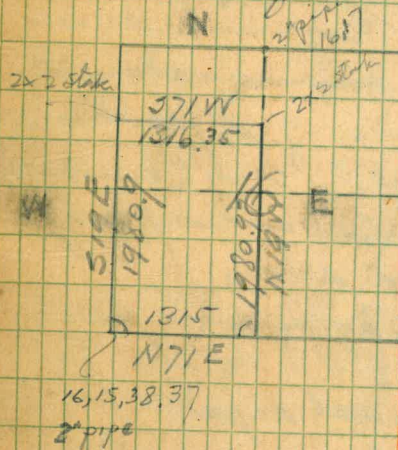 N
2" pipe
16,17
2x2 stake
2x2 stake
S71W
1316.35
W
E
S19E
1980.9
1980.95
N19W
1315
N71E
16,15,38,37
2" pipe